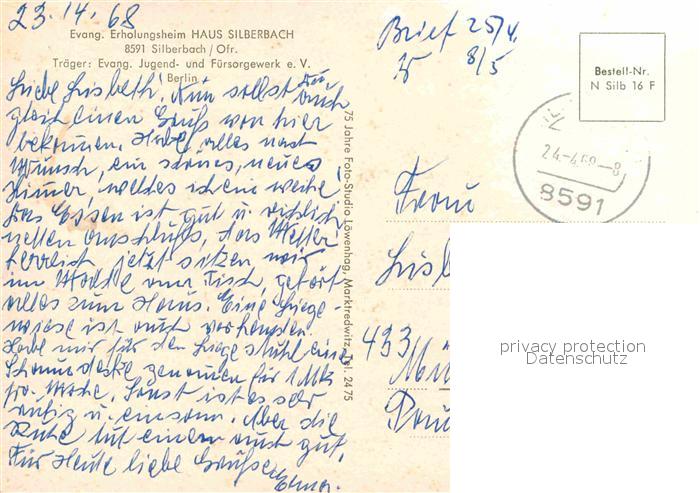 23. 4. 68
Evang. Erholungsheim HAUS SILBERBACH
8591 Silberbach / Ofr.
Träger: Evang. Jugend- und Fürsorgewerk e. V.
Berlin
Liebe Lisbeth! Nun sollst Du auch
gleich einen Gruß von hier
bekommen. Habe alles nach
Wunsch, ein schönes, neues
Zimmer, welches ich ein weihe!
Das Essen ist gut u. reichlich
netten Anschluß, das Wetter
herrlich jetzt sitzen wir
im Walde am Tisch, gehört
alles zum Haus. Eine Liege-
wiese ist auch vorhanden.
Habe mir für den Liegestuhl eine
Schaumdecke genommen für 1 Mk
pro Woche. Sonst ist es sehr
ruhig u. einsam. Aber die
Ruhe tut einem auch gut.
Für Heute liebe Grüße
Erna.
75 Jahre Foto-Studio Löwenhag, Marktredwitz, Tel. 24 75
Brief 25/4.
8/5
Bestell-Nr.
N Silb 16 F
24.-4.68-8
8591
Frau
Lisb
433 Mü
privacy protection
Datenschutz